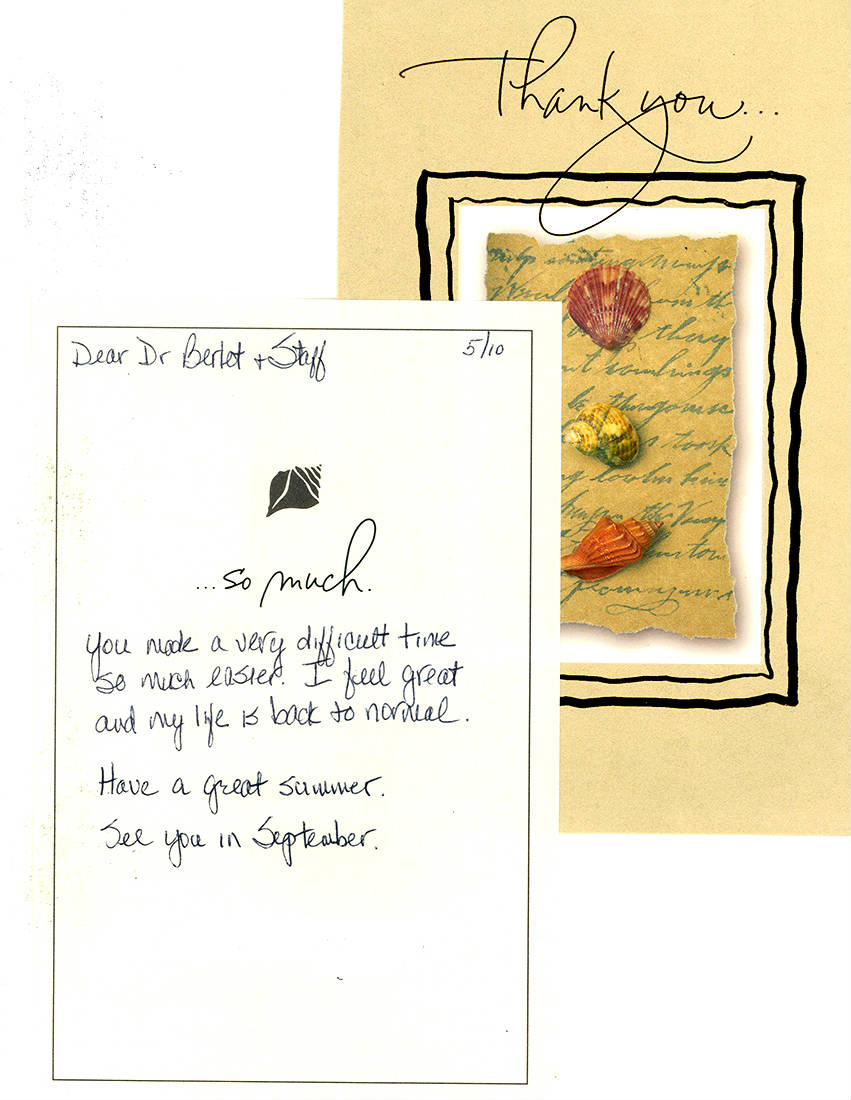 Thank you...
Dear Dr Berlet + Staff
5/10
...so much.
You made a very difficult time
so much easier. I feel great
and my life is back to normal.
Have a great summer.
See you in September.